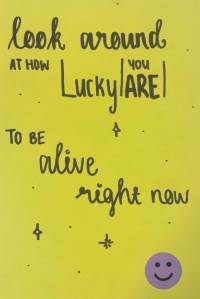 look around
AT HOW Lucky |YOU ARE|
TO BE
alive
right now